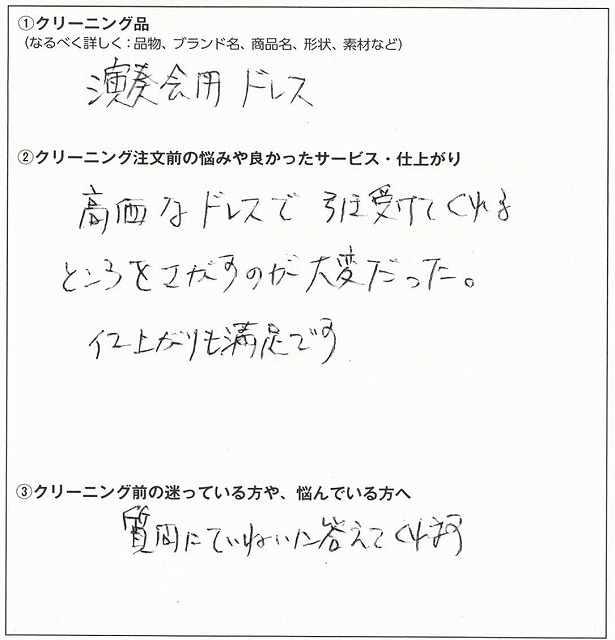 ①クリーニング品
（なるべく詳しく：品物、ブランド名、商品名、形状、素材など）
演奏会用 ドレス
②クリーニング注文前の悩みや良かったサービス・仕上がり
高価なドレスで 引き受けてくれる
ところをさがすのが大変だった。
仕上がりも満足です
③クリーニング前の迷っている方や、悩んでいる方へ
質問にていねいに答えてくれます